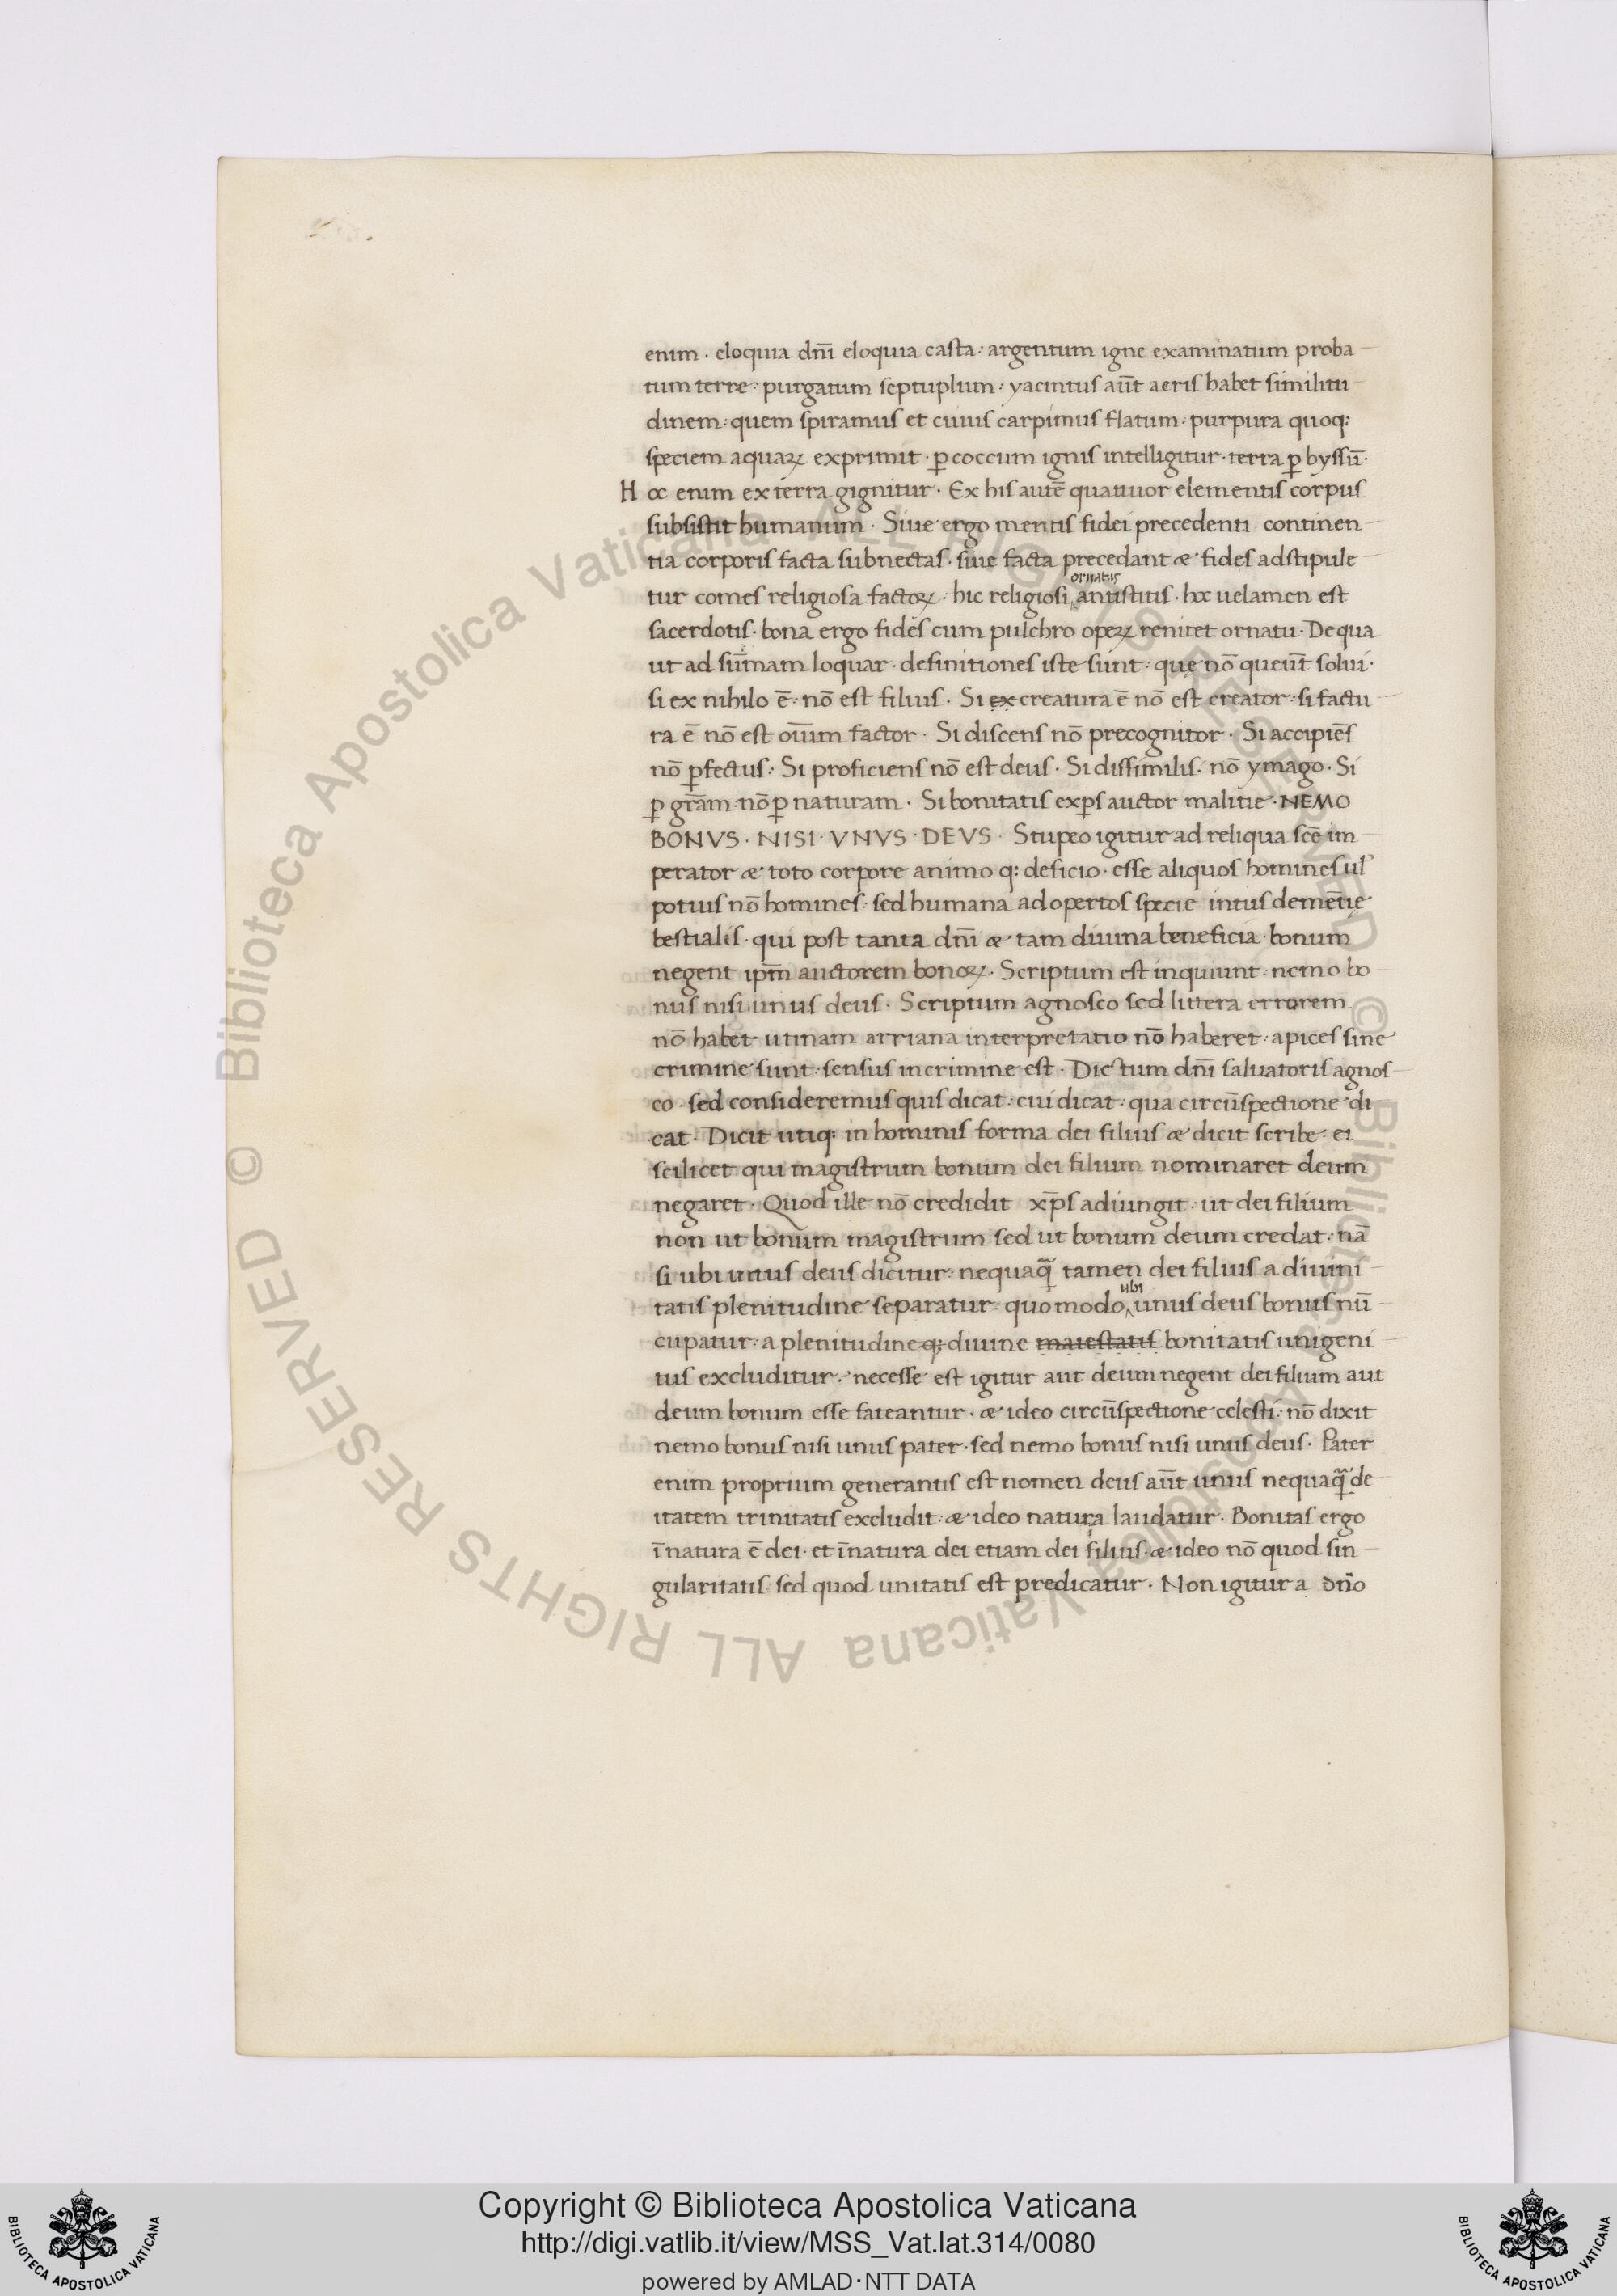 enim · eloquia dn̄i eloquia casta : argentum igne examinatum proba
tum terre : purgatum septuplum : yacintus aūt aeris habet similitu
dinem : quem spiramus et cuius carpimus flatum · purpura quoq:
speciem aquaꝝ exprimit · ꝑ coccum ignis intelligitur · terra ꝑ byssū ·
Hoc enim ex terra gignitur · Ex his autē quattuor elementis corpus
subsistit humanum · Siue ergo mentis fidei precedenti continen
tia corporis facta subnectas · siue facta precedant æ fides adstipule
tur comes religiosa factoꝝ : hic religiosi ornatus antistitis · hoc uelamen est
sacerdotis · bona ergo fides cum pulchro opeꝝ renitet ornatu · De qua
ut ad sūmam loquar · definitiones iste sunt : que nō queūt solui ·
si ex nihilo ē : nō est filius · Si ex creatura ē nō est creator : si factu
ra ē nō est oīum factor · Si discens nō precognitor · Si accipiēs
nō ꝑfectus : Si proficiens nō est deus · Si dissimilis · nō ymago · Si
ꝑ grām · nō ꝑ naturam · Si bonitatis exꝑs auctor malitie · NEMO
BONVS · NISI · VNVS · DEVS · Stupeo igitur ad reliqua scē im
perator æ toto corpore animo q: deficio · esse aliquos homines ul'
potius nō homines : sed humana adopertos specie intus demētię
bestialis · qui post tanta dn̄i æ tam diuina beneficia · bonum
negent ip̄m auctorem bonoꝝ · Scriptum est inquiunt : nemo bo
nus nisi unus deus · Scriptum agnosco sed littera errorem
nō habet utinam arriana interpretatio nō haberet : apices sine
crimine sunt · sensus in crimine est · Dictum dn̄i saluatoris agnos
co · sed consideremus quis dicat : cui dicat : qua circūspectione di
cat · Dicit utiq: in hominis forma dei filius æ dicit scribe : ei
scilicet qui magistrum bonum dei filium nominaret deum
negaret · Quod ille nō credidit xp̄s adiungit : ut dei filium
non ut bonum magistrum sed ut bonum deum credat : nā
si ubi unus deus dicitur : nequaq̄ tamen dei filius a diuini
tatis plenitudine separatur : quo modo ubi unus deus bonus nū
cupatur : a plenitudine q: diuine maiestatis bonitatis unigeni
tus excluditur : necesse est igitur aut deum negent dei filium aut
deum bonum esse fateantur · æ ideo circūspectione celesti : nō dixit
nemo bonus nisi unus pater · sed nemo bonus nisi unus deus · Pater
enim proprium generantis est nomen deus aūt unus nequaq̄ de
itatem trinitatis excludit : æ ideo natura laudatur · Bonitas ergo
ī natura ē dei · et ī natura dei etiam dei filius · æ ideo nō quod sin
gularitatis sed quod unitatis est predicatur · Non igitur a dn̄o
© Biblioteca Apostolica Vaticana ALL RIGHTS RESERVED
© Biblioteca Apostolica Vaticana ALL RIGHTS RESERVED
Copyright © Biblioteca Apostolica Vaticana
http://digi.vatlib.it/view/MSS_Vat.lat.314/0080
powered by AMLAD·NTT DATA
BIBLIOTECA APOSTOLICA VATICANA
BIBLIOTECA APOSTOLICA VATICANA